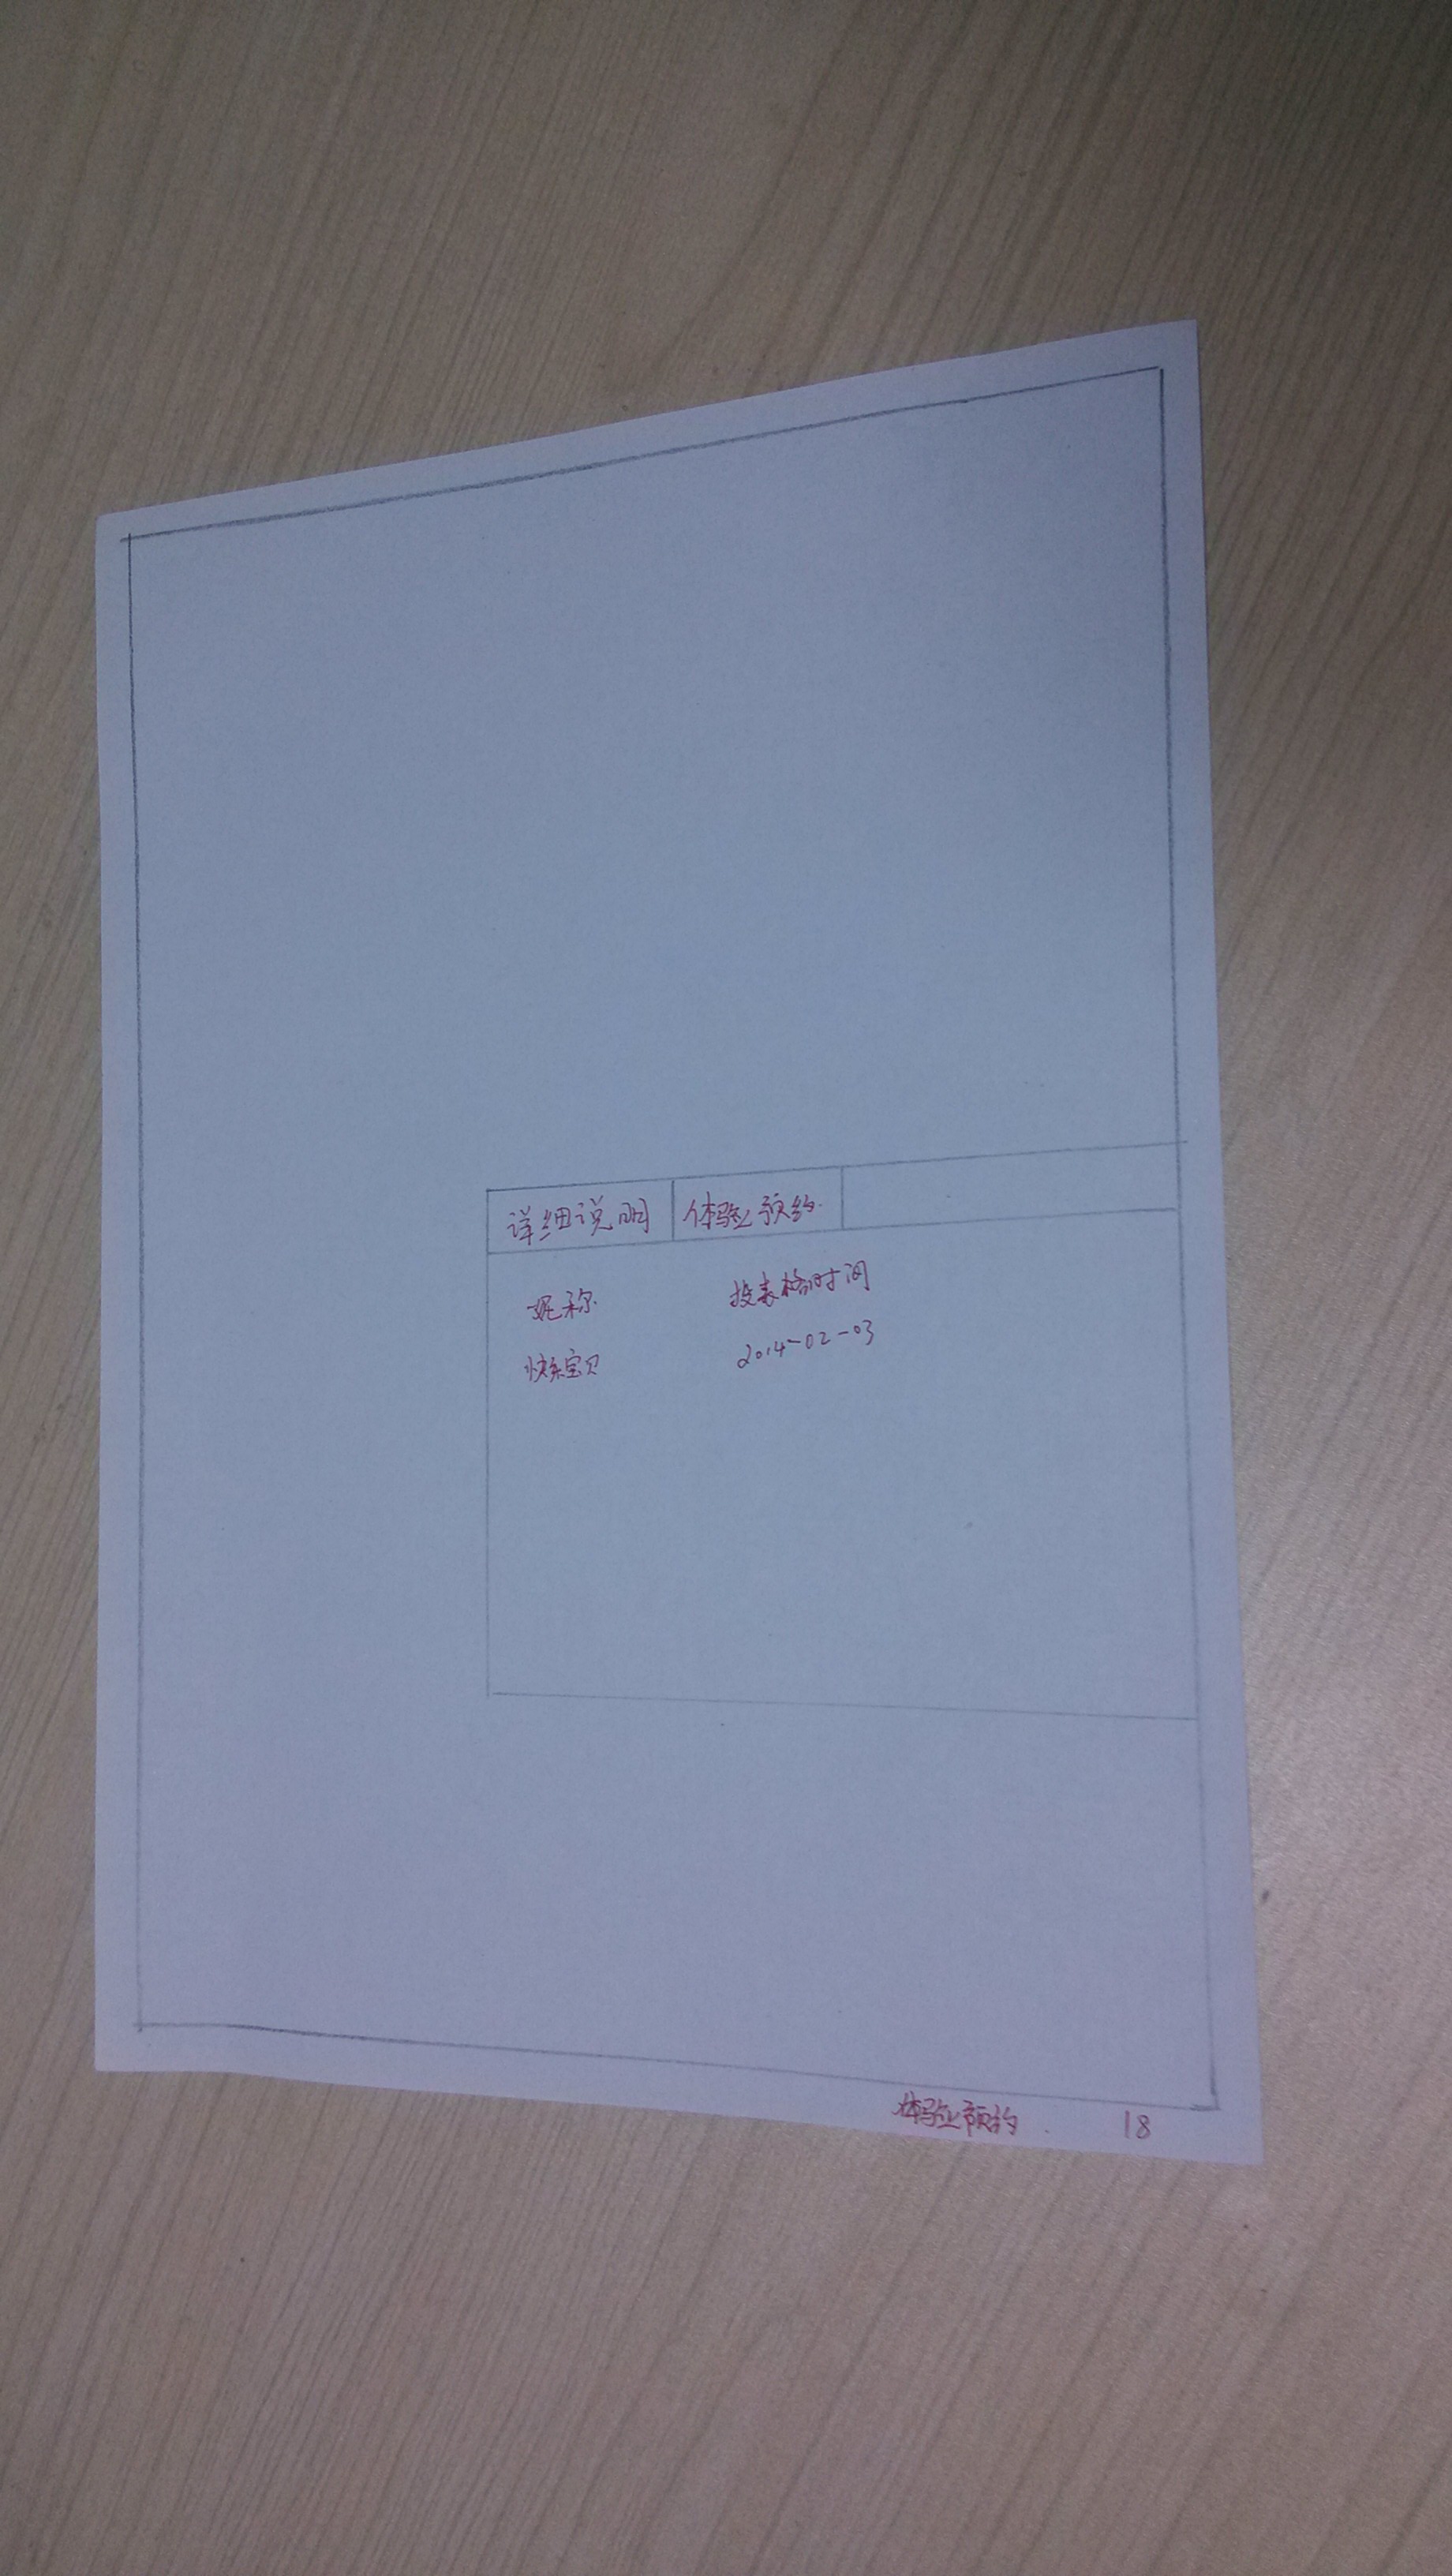 详细说明 体验预约
昵称 投表格时间
快乐宝贝 2014-02-03
体验预约 18